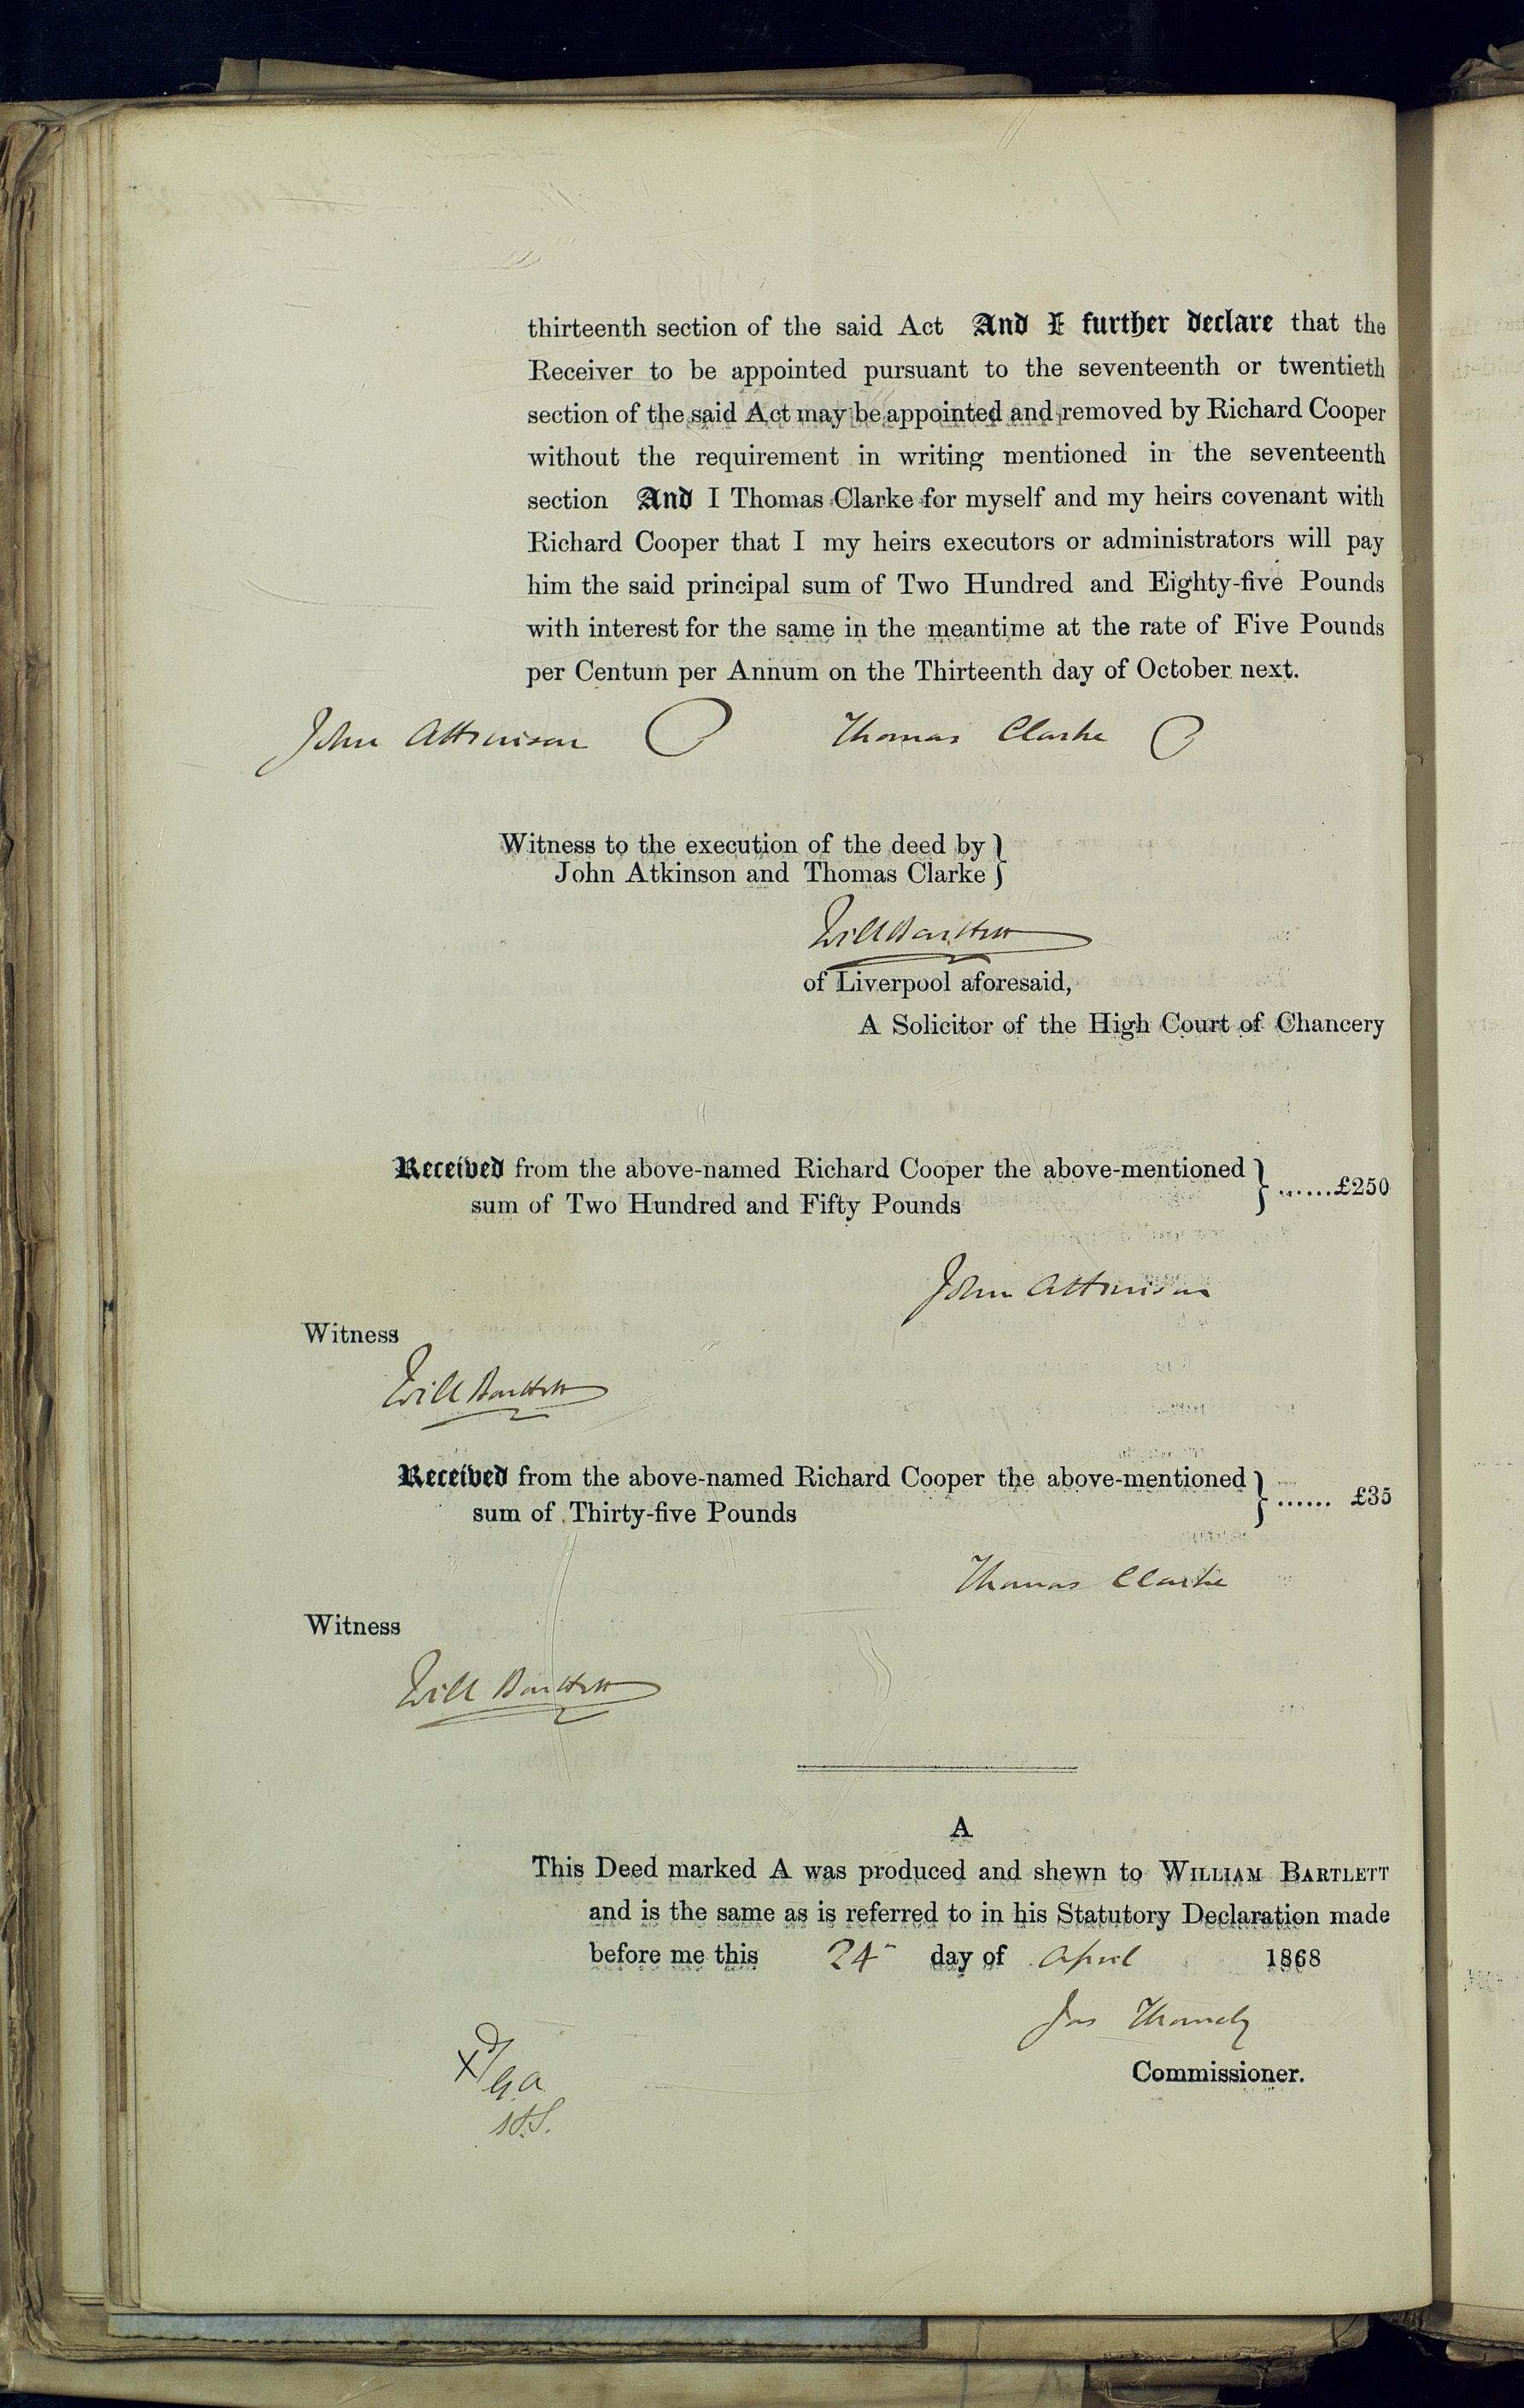 thirteenth section of the said Act And I further declare that the
Receiver to be appointed pursuant to the seventeenth or twentieth
section of the said Act may be appointed and removed by Richard Cooper
without the requirement in writing mentioned in the seventeenth
section And I Thomas Clarke for myself and my heirs covenant with
Richard Cooper that I my heirs executors or administrators will pay
him the said principal sum of Two Hundred and Eighty-five Pounds
with interest for the same in the meantime at the rate of Five Pounds
per Centum per Annum on the Thirteenth day of October next.
John Atkinson Thomas Clarke
Witness to the execution of the deed by }
John Atkinson and Thomas Clarke }
Will Bartlett
of Liverpool aforesaid,
A Solicitor of the High Court of Chancery
Received from the above-named Richard Cooper the above-mentioned
sum of Two Hundred and Fifty Pounds } ......£250
John Atkinson
Witness
Will Bartlett
Received from the above-named Richard Cooper the above-mentioned
sum of Thirty-five Pounds } ...... £35
Thomas Clarke
Witness
Will Bartlett
A
This Deed marked A was produced and shewn to WILLIAM BARTLETT
and is the same as is referred to in his Statutory Declaration made
before me this 24 day of April 1868
Jas Thornely
Commissioner.